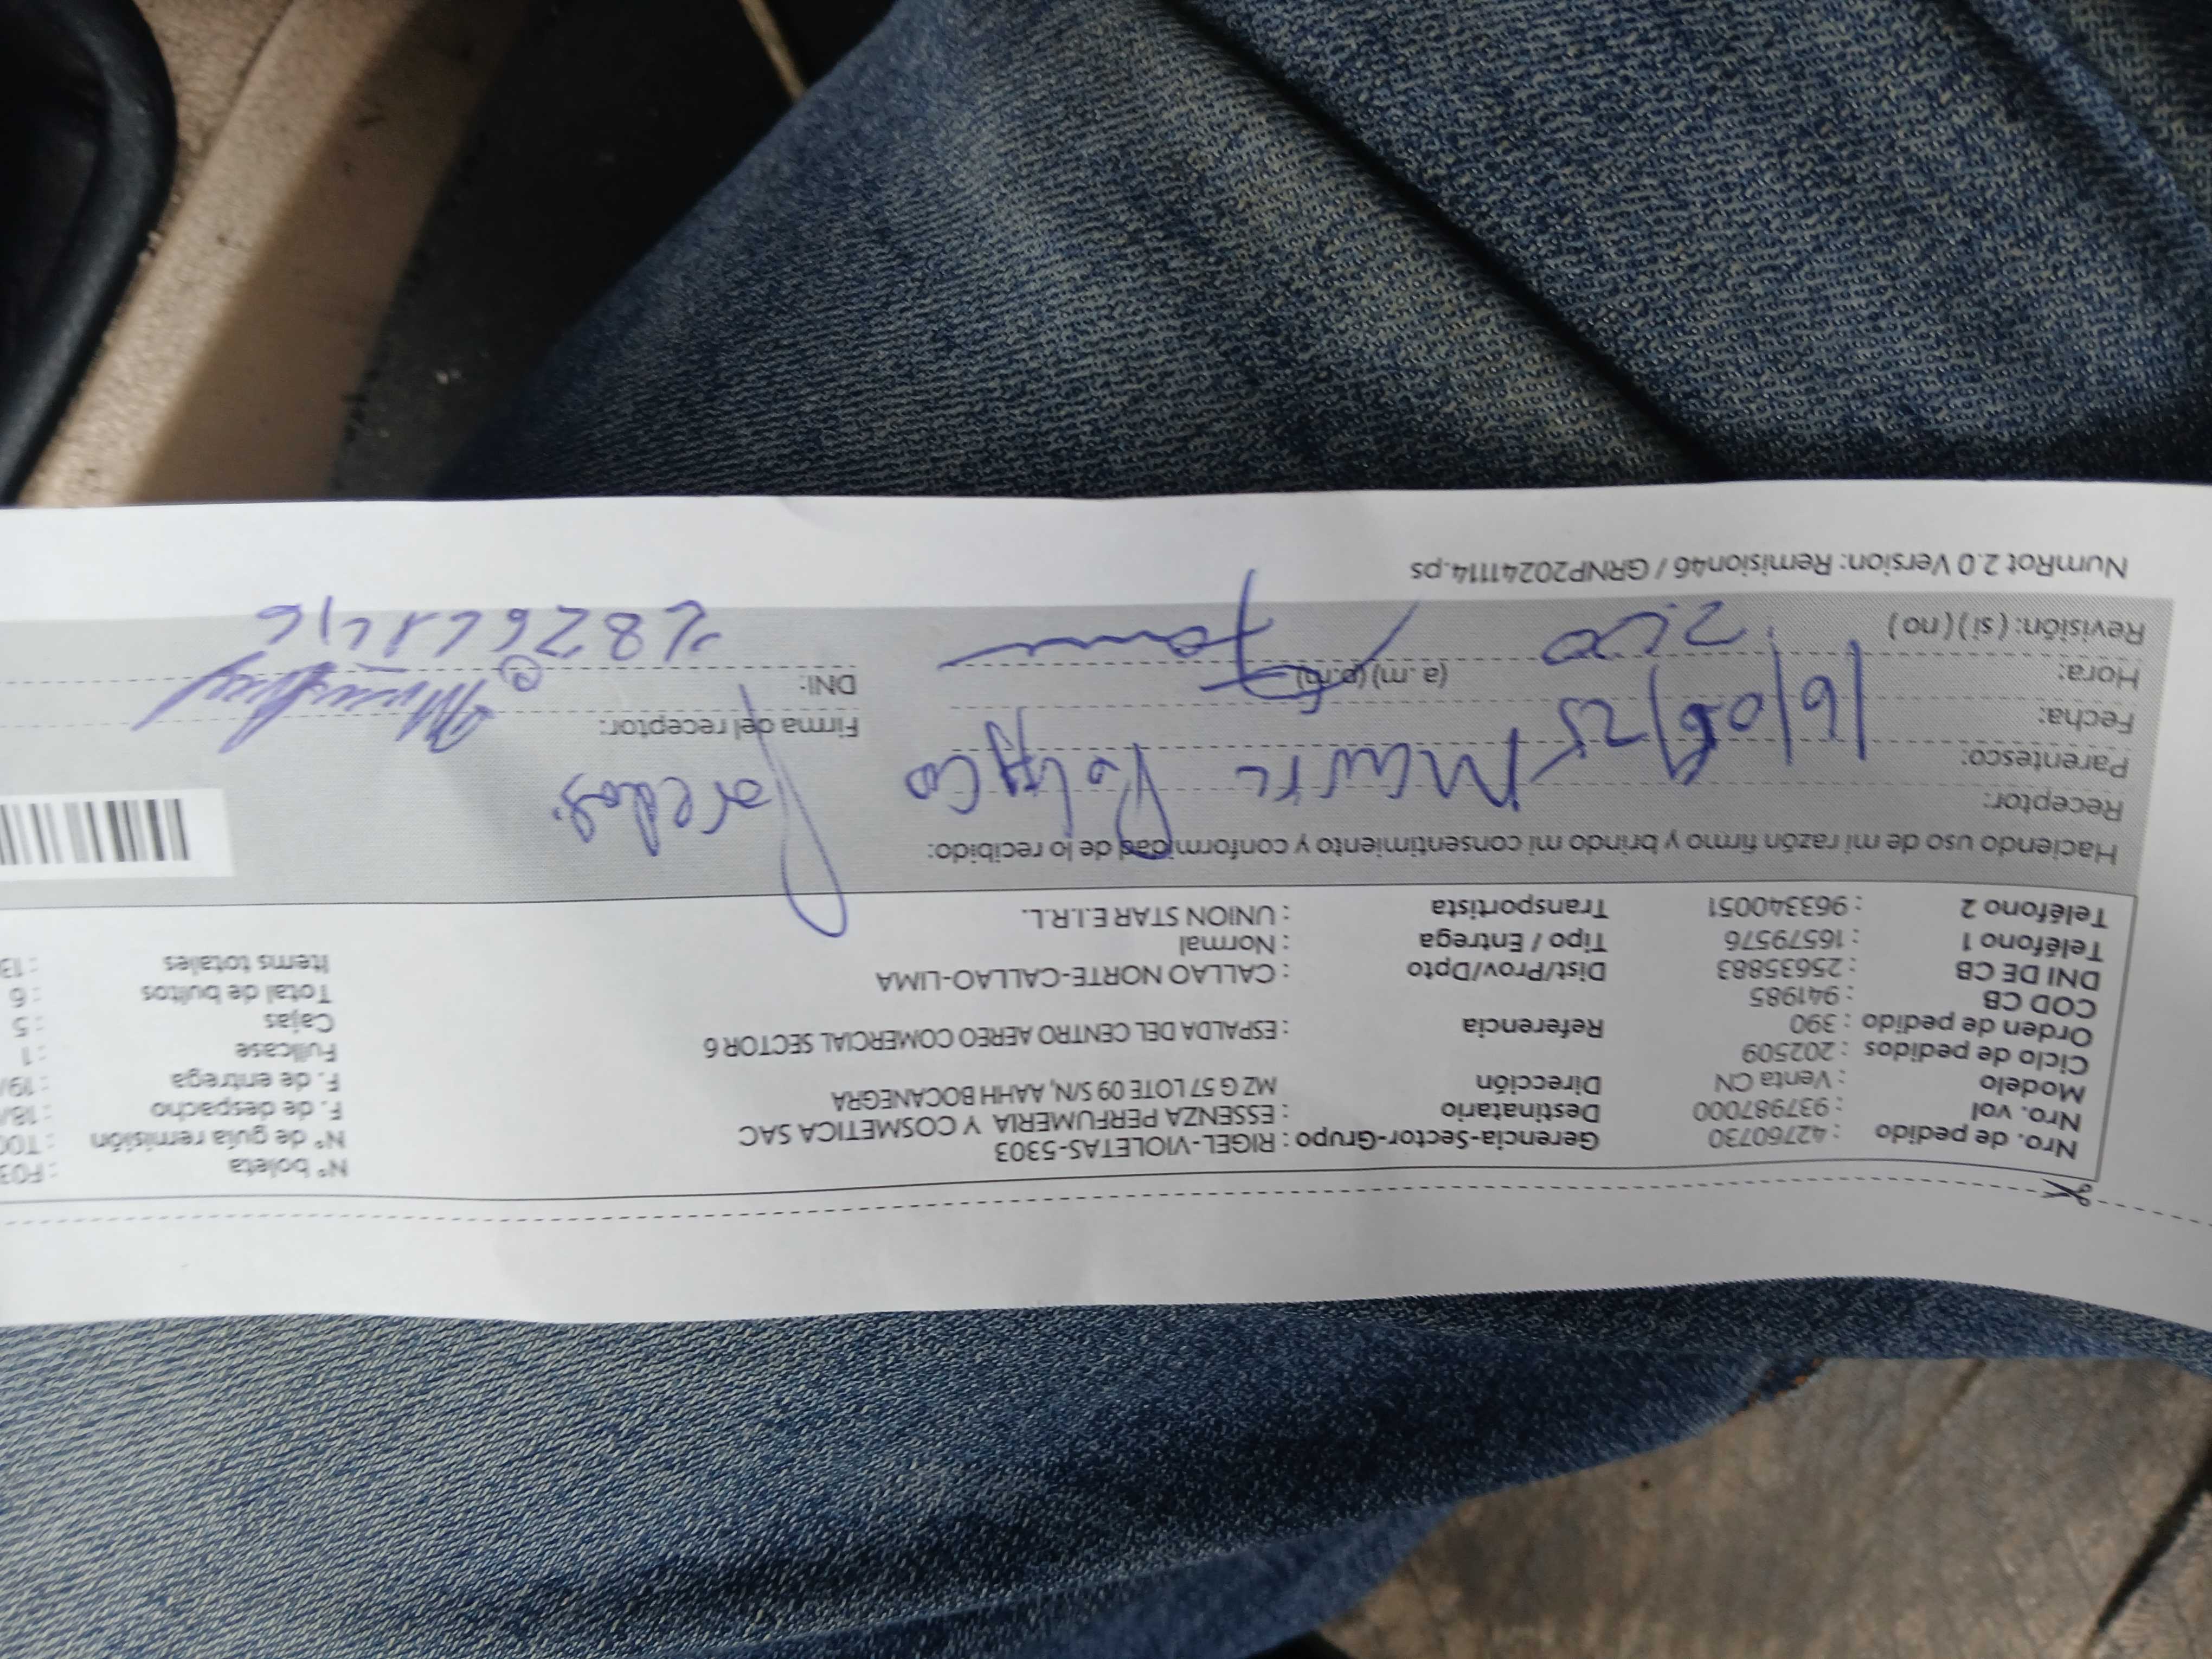 Nro. de pedido : 42760730 Gerencia-Sector-Grupo : RIGEL-VIOLETAS-5303 N° boleta : F03
Nro. vol : 937987000 Destinatario : ESSENZA PERFUMERIA Y COSMETICA SAC N° de guía remisión : T00
Modelo : Venta CN Dirección MZ G 57 LOTE 09 S/N, AAHH BOCANEGRA F. de despacho : 18/
Ciclo de pedidos : 202509 F. de entrega : 19/
Orden de pedido : 390 Referencia : ESPALDA DEL CENTRO AEREO COMERCIAL SECTOR 6 Fullcase : 1
COD CB : 941985 Cajas : 5
DNI DE CB : 25635883 Dist/Prov/Dpto : CALLAO NORTE-CALLAO-LIMA Total de bultos : 6
Teléfono 1 : 16579576 Tipo / Entrega : Normal Items totales : 13
Teléfono 2 : 963340051 Transportista : UNION STAR E.I.R.L.
Haciendo uso de mi razón firmo y brindo mi consentimiento y conformidad de lo recibido:
Receptor:
Parentesco: Firma del receptor:
Fecha: 16/06/25 DNI:
Hora: (a. m) (p.m)
Revisión: ( si ) ( no )
NumRot 2.0 Version: Remision46 / GRNP20241114.ps